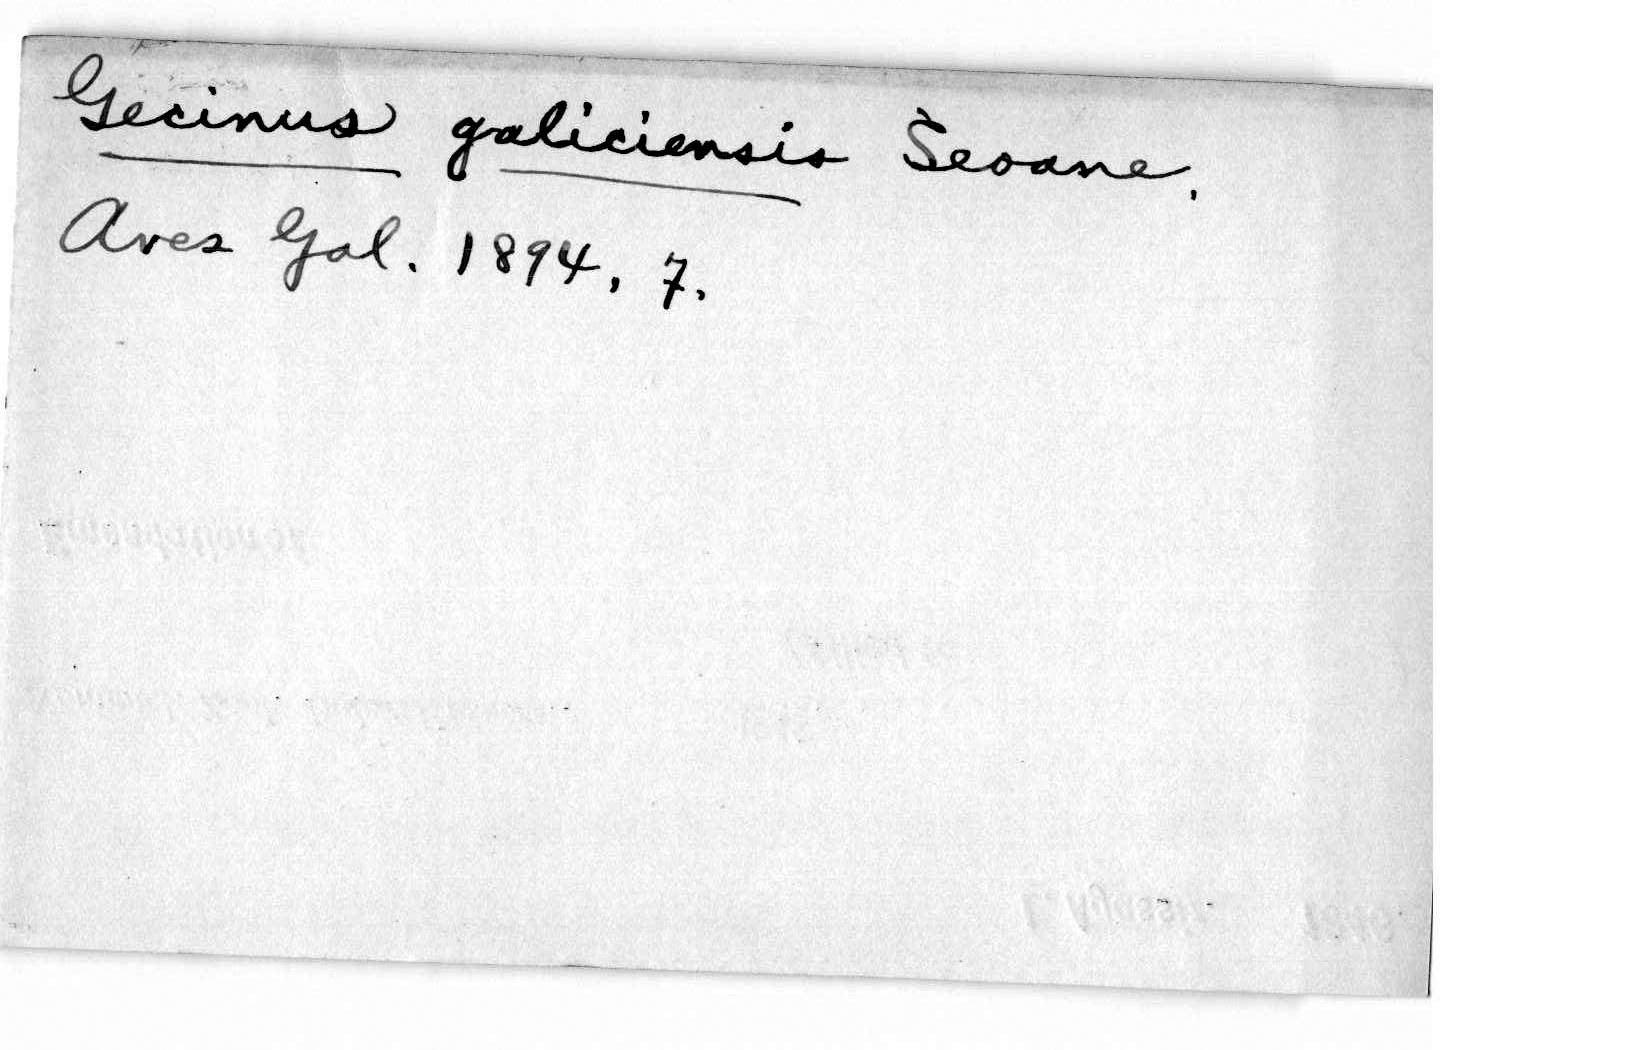 Gecinus galiciensis Seoane.
Aves Gal. 1894, 7.